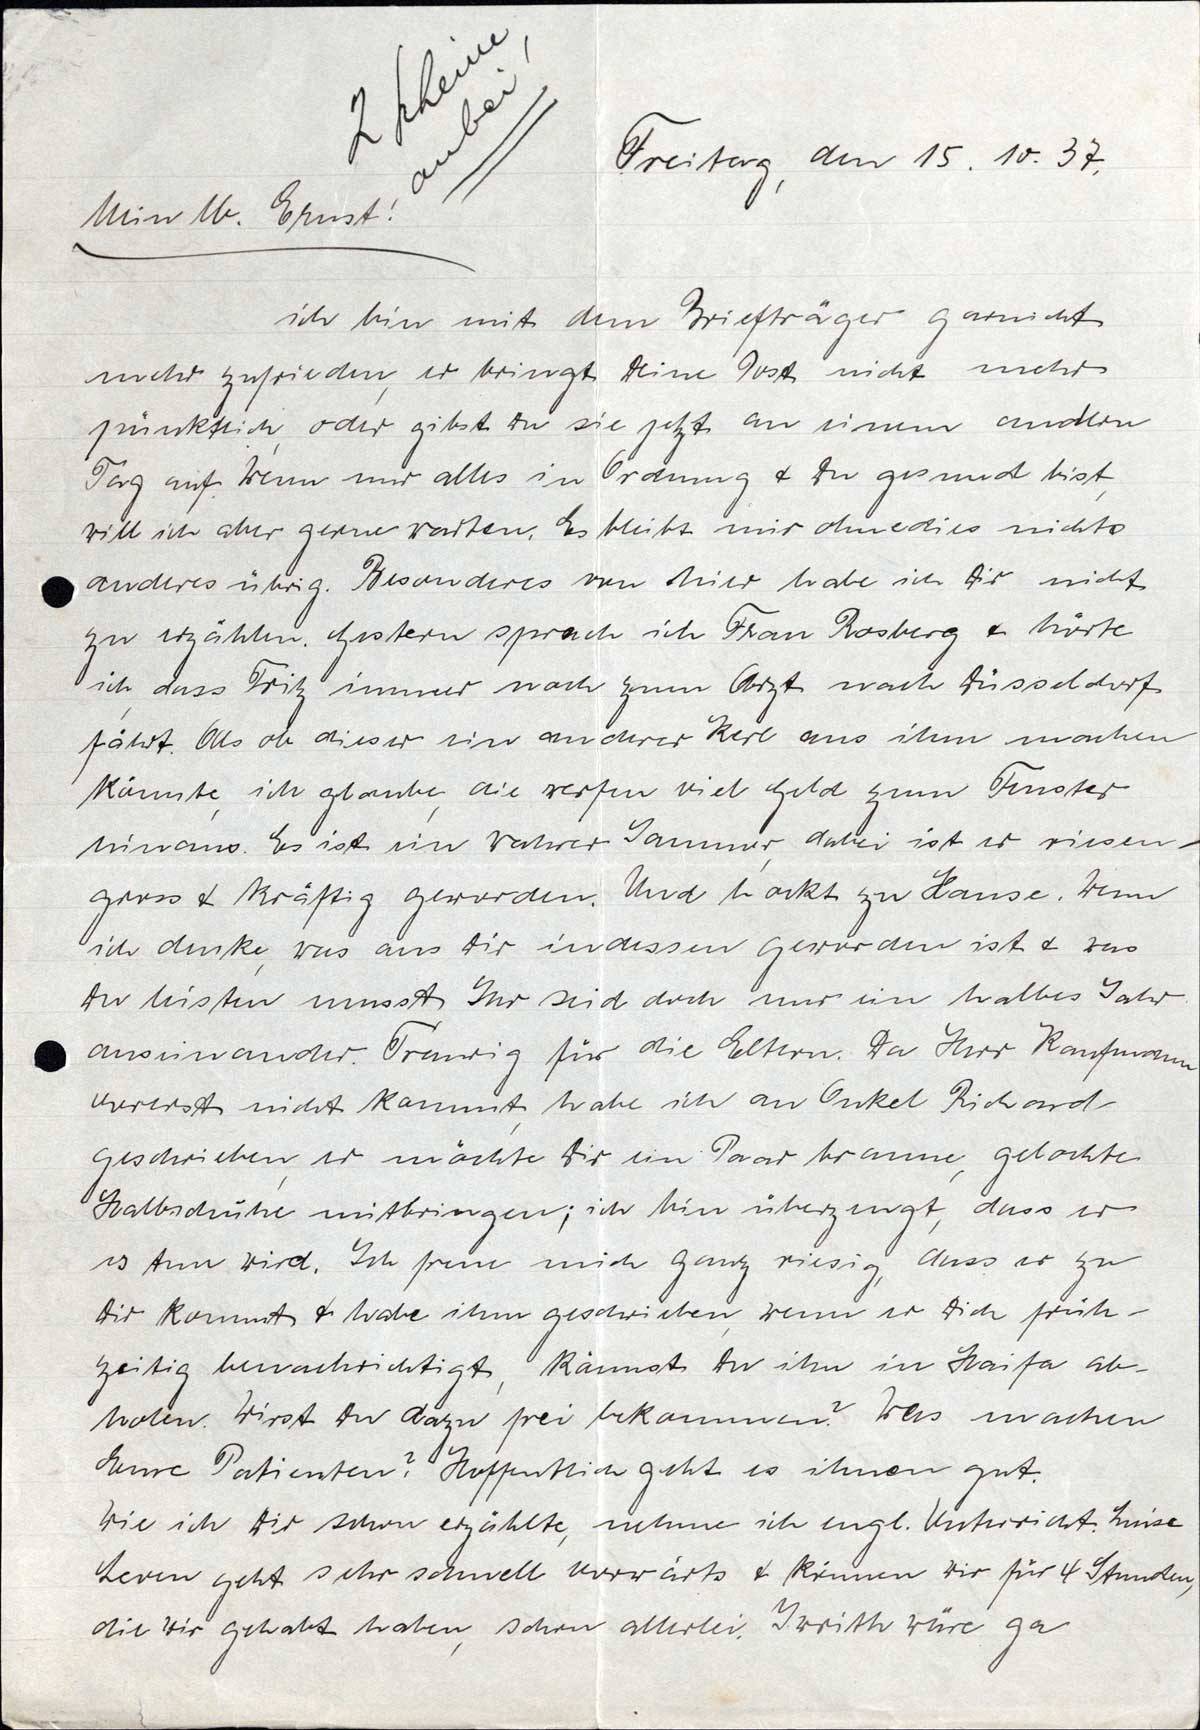 2 Scheine
anbei,
Freitag, den 15. 10. 37.
Mein lb. Ernst!
ich bin mit dem Briefträger garnicht
mehr zufrieden, er bringt Deine Post nicht mehr
pünktlich, oder gibst Du sie jetzt an einem andern
Tag auf. Wenn nur alles in Ordnung & Du gesund bist,
will ich aber gerne warten. Es bleibt mir ohnedies nichts
anderes übrig. Besonderes von hier habe ich Dir nicht
zu erzählen. Gestern sprach ich Frau Rosberg & hörte
ich, dass Fritz immer noch zum Arzt nach Düsseldorf
fährt. Als ob dieser ein anderer Kerl aus ihm machen
könnte, ich glaube, die werfen viel Geld zum Fenster
hinaus. Es ist ein wahrer Jammer, dabei ist er riesen-
gross & kräftig geworden. Und hockt zu Hause. Wenn
ich denke, was aus Dir indessen geworden ist & was
Du leisten musst. Ihr seid doch nur ein halbes Jahr
auseinander. Traurig für die Eltern. Da Herr Kaufmann
vorerst nicht kommt, habe ich an Onkel Richard
geschrieben, er möchte Dir ein Paar braune, gelochte
Halbschuhe mitbringen; ich bin überzeugt, dass er
es tun wird. Ich freue mich ganz riesig, dass er zu
Dir kommt & habe ihm geschrieben, wenn er Dich früh-
zeitig benachrichtigt, kannst Du ihn in Haifa ab-
holen. Wirst Du dazu frei bekommen? Was machen
Eure Patienten? Hoffentlich geht es ihnen gut.
Wie ich Dir schon erzählte, nehme ich engl. Unterricht. Luise
Leven geht sehr schnell vorwärts & können wir für 4 Stunden,
die wir gehabt haben, schon allerlei. Iwrith wäre ga